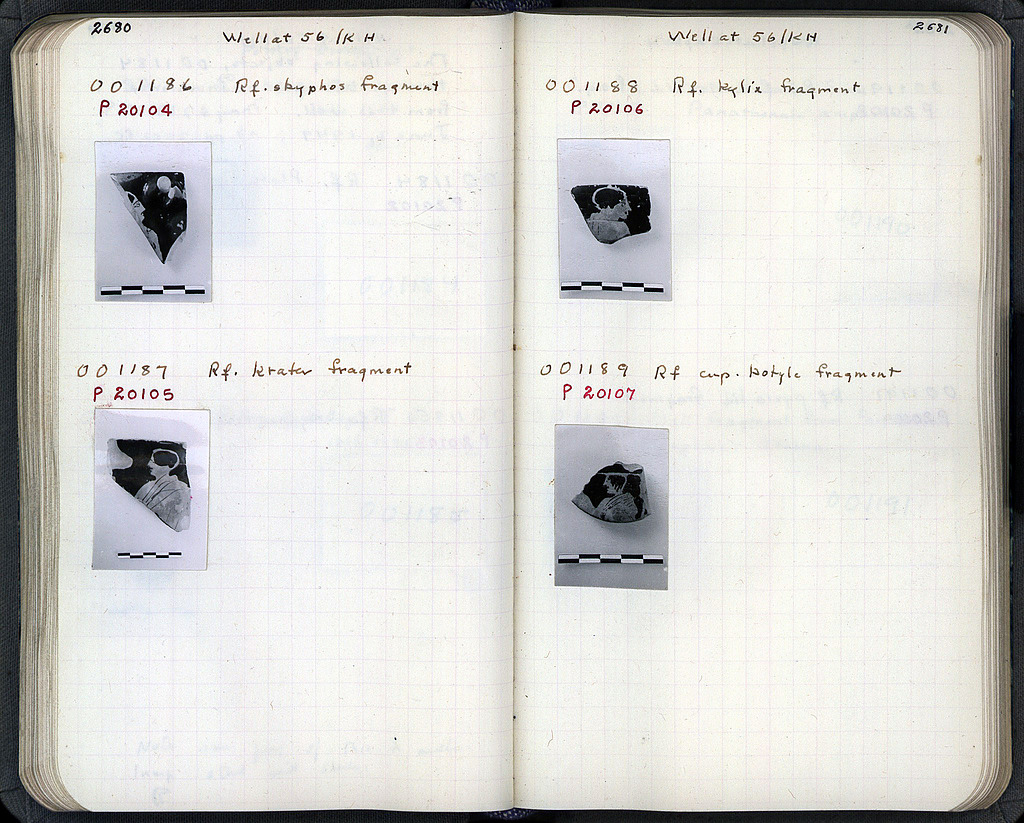 2680
Well at 56/KH
OO 1186 Rf. skyphos fragment
P 20104
OO 1187 Rf. krater fragment
P 20105
2681
Well at 56/KH
OO 1188 Rf. kylix fragment
P 20106
OO 1189 Rf cup-kotyle fragment
P 20107